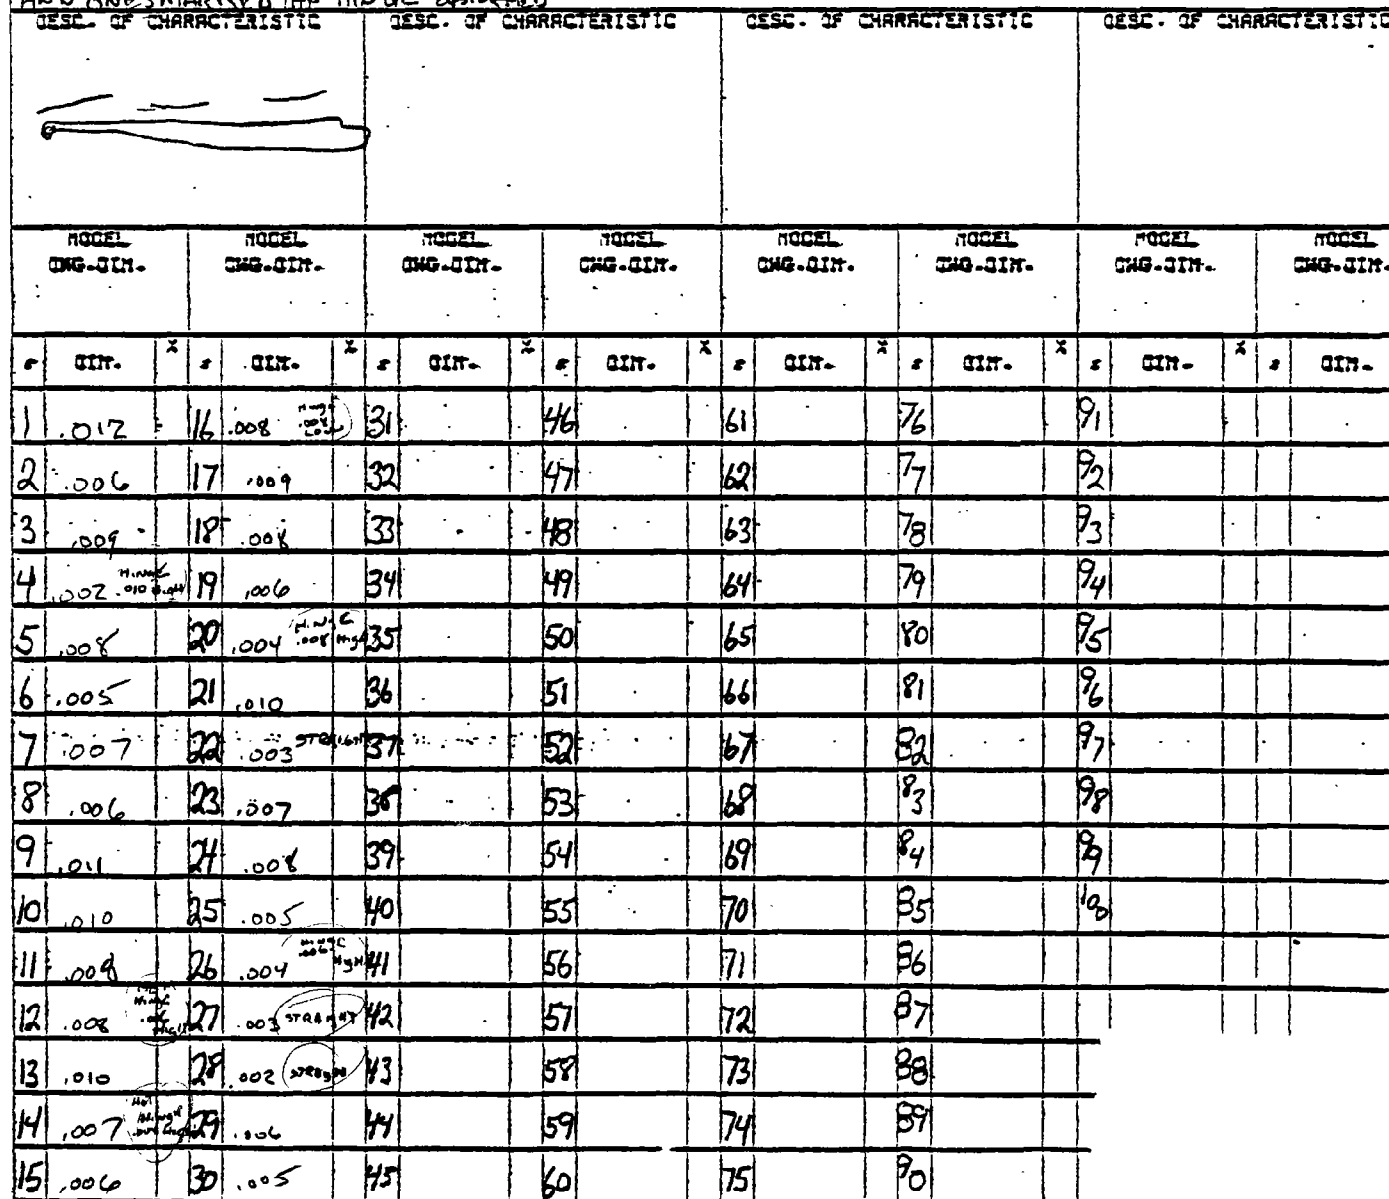 DESC. OF CHARACTERISTIC DESC. OF CHARACTERISTIC DESC. OF CHARACTERISTIC DESC. OF CHARACTERISTIC
MODEL MODEL MODEL MODEL MODEL MODEL MODEL MODEL
DWG.DIM. DWG.DIM. DWG.DIM. DWG.DIM. DWG.DIM. DWG.DIM. DWG.DIM. DWG.DIM.
DIM. DIM. DIM. DIM. DIM. DIM. DIM. DIM.
1 .012 16 .008 31 46 61 76 91
2 .006 17 .009 32 47 62 77 92
3 .009 18 .008 33 48 63 78 93
4 .002 HINGE .010 19 .006 34 49 64 79 94
5 .008 20 .004 HINGE .008 High 35 50 65 80 95
6 .005 21 .010 36 51 66 81 96
7 .007 22 .003 STRAIGHT 37 52 67 82 97
8 .006 23 .007 38 53 68 83 98
9 .011 24 .008 39 54 69 84 99
10 .010 25 .005 40 55 70 85 100
11 .008 26 .004 HINGE .006 High 41 56 71 86
12 .008 HINGE 27 .003 STRAIGHT 42 57 72 87
13 .010 28 .002 43 58 73 88
14 .007 29 .006 44 59 74 89
15 .006 30 .005 45 60 75 90